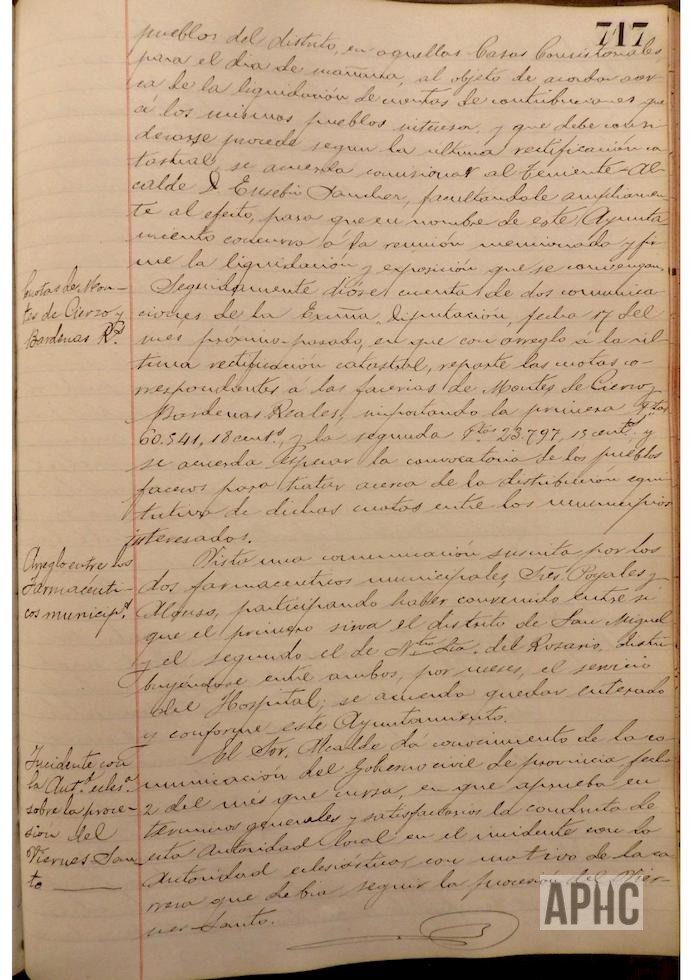 717
pueblos del distrito, en aquellas Casas Consistoriales
para el dia de mañana, al objeto de acordar acer-
ca de la liquidación de cuentas de contribuciones que
á los mismos pueblos interesa, y que debe consi-
derarse procede segun la ultima rectificación ca-
tastral, se acuerda comisionar al Teniente-Al-
calde D. Eusebio Sanchez, facultandole ampliamen-
te al efecto, para que en nombre de este Ayunta-
miento concurra á la reunión mencionada y fir-
me la liquidación y exposición que se convengan.
Cuotas de Mon-
tes de Cierzo y
Bardenas Rs.
Seguidamente dióse cuenta de dos comunica-
ciones de la Exma. Diputación, fecha 17 del
mes próximo-pasado, en que con arreglo á la úl-
tima rectificación catastral, reparte las cuotas co-
rrespondientes á las facerias de Montes de Cierzo y
Bardenas Reales, importando la primera Ptas
60.541, 18 cents, y la segunda Ptas 23.797, 15 cents y
se acuerda esperar la convocatoria de los pueblos
faceros para tratar acerca de la distribucion equi-
tativa de dichas cuotas entre los municipios
interesados.
Arreglo entre los
Farmacéuti-
cos municips.
Vista una comunicación suscrita por los
dos farmaceuticos municipales, Sres. Poyales y
Alonso, participando haber convenido entre si
que el primero sirva el distrito de San Miguel
y el segundo el de Ntra. Sra. del Rosario, distri-
buyéndose entre ambos, por meses, el servicio
del Hospital; se acuerda quedar enterado
y conforme este Ayuntamiento.
Incidente con
la Autd. eclesa.
sobre la proce-
sion del
Viernes San-
to
El Sor. Alcalde dá conocimiento de la co-
municación del Gobierno civil de provincia fecha
2 del mes que cursa, en que aprueba en
terminos generales y satisfactorios la conducta de
esta Autoridad local en el incidente con la
Autoridad eclesiástica, con motivo de la ca-
rrera que debia seguir la procesión del Vier-
nes-Santo.
APHC